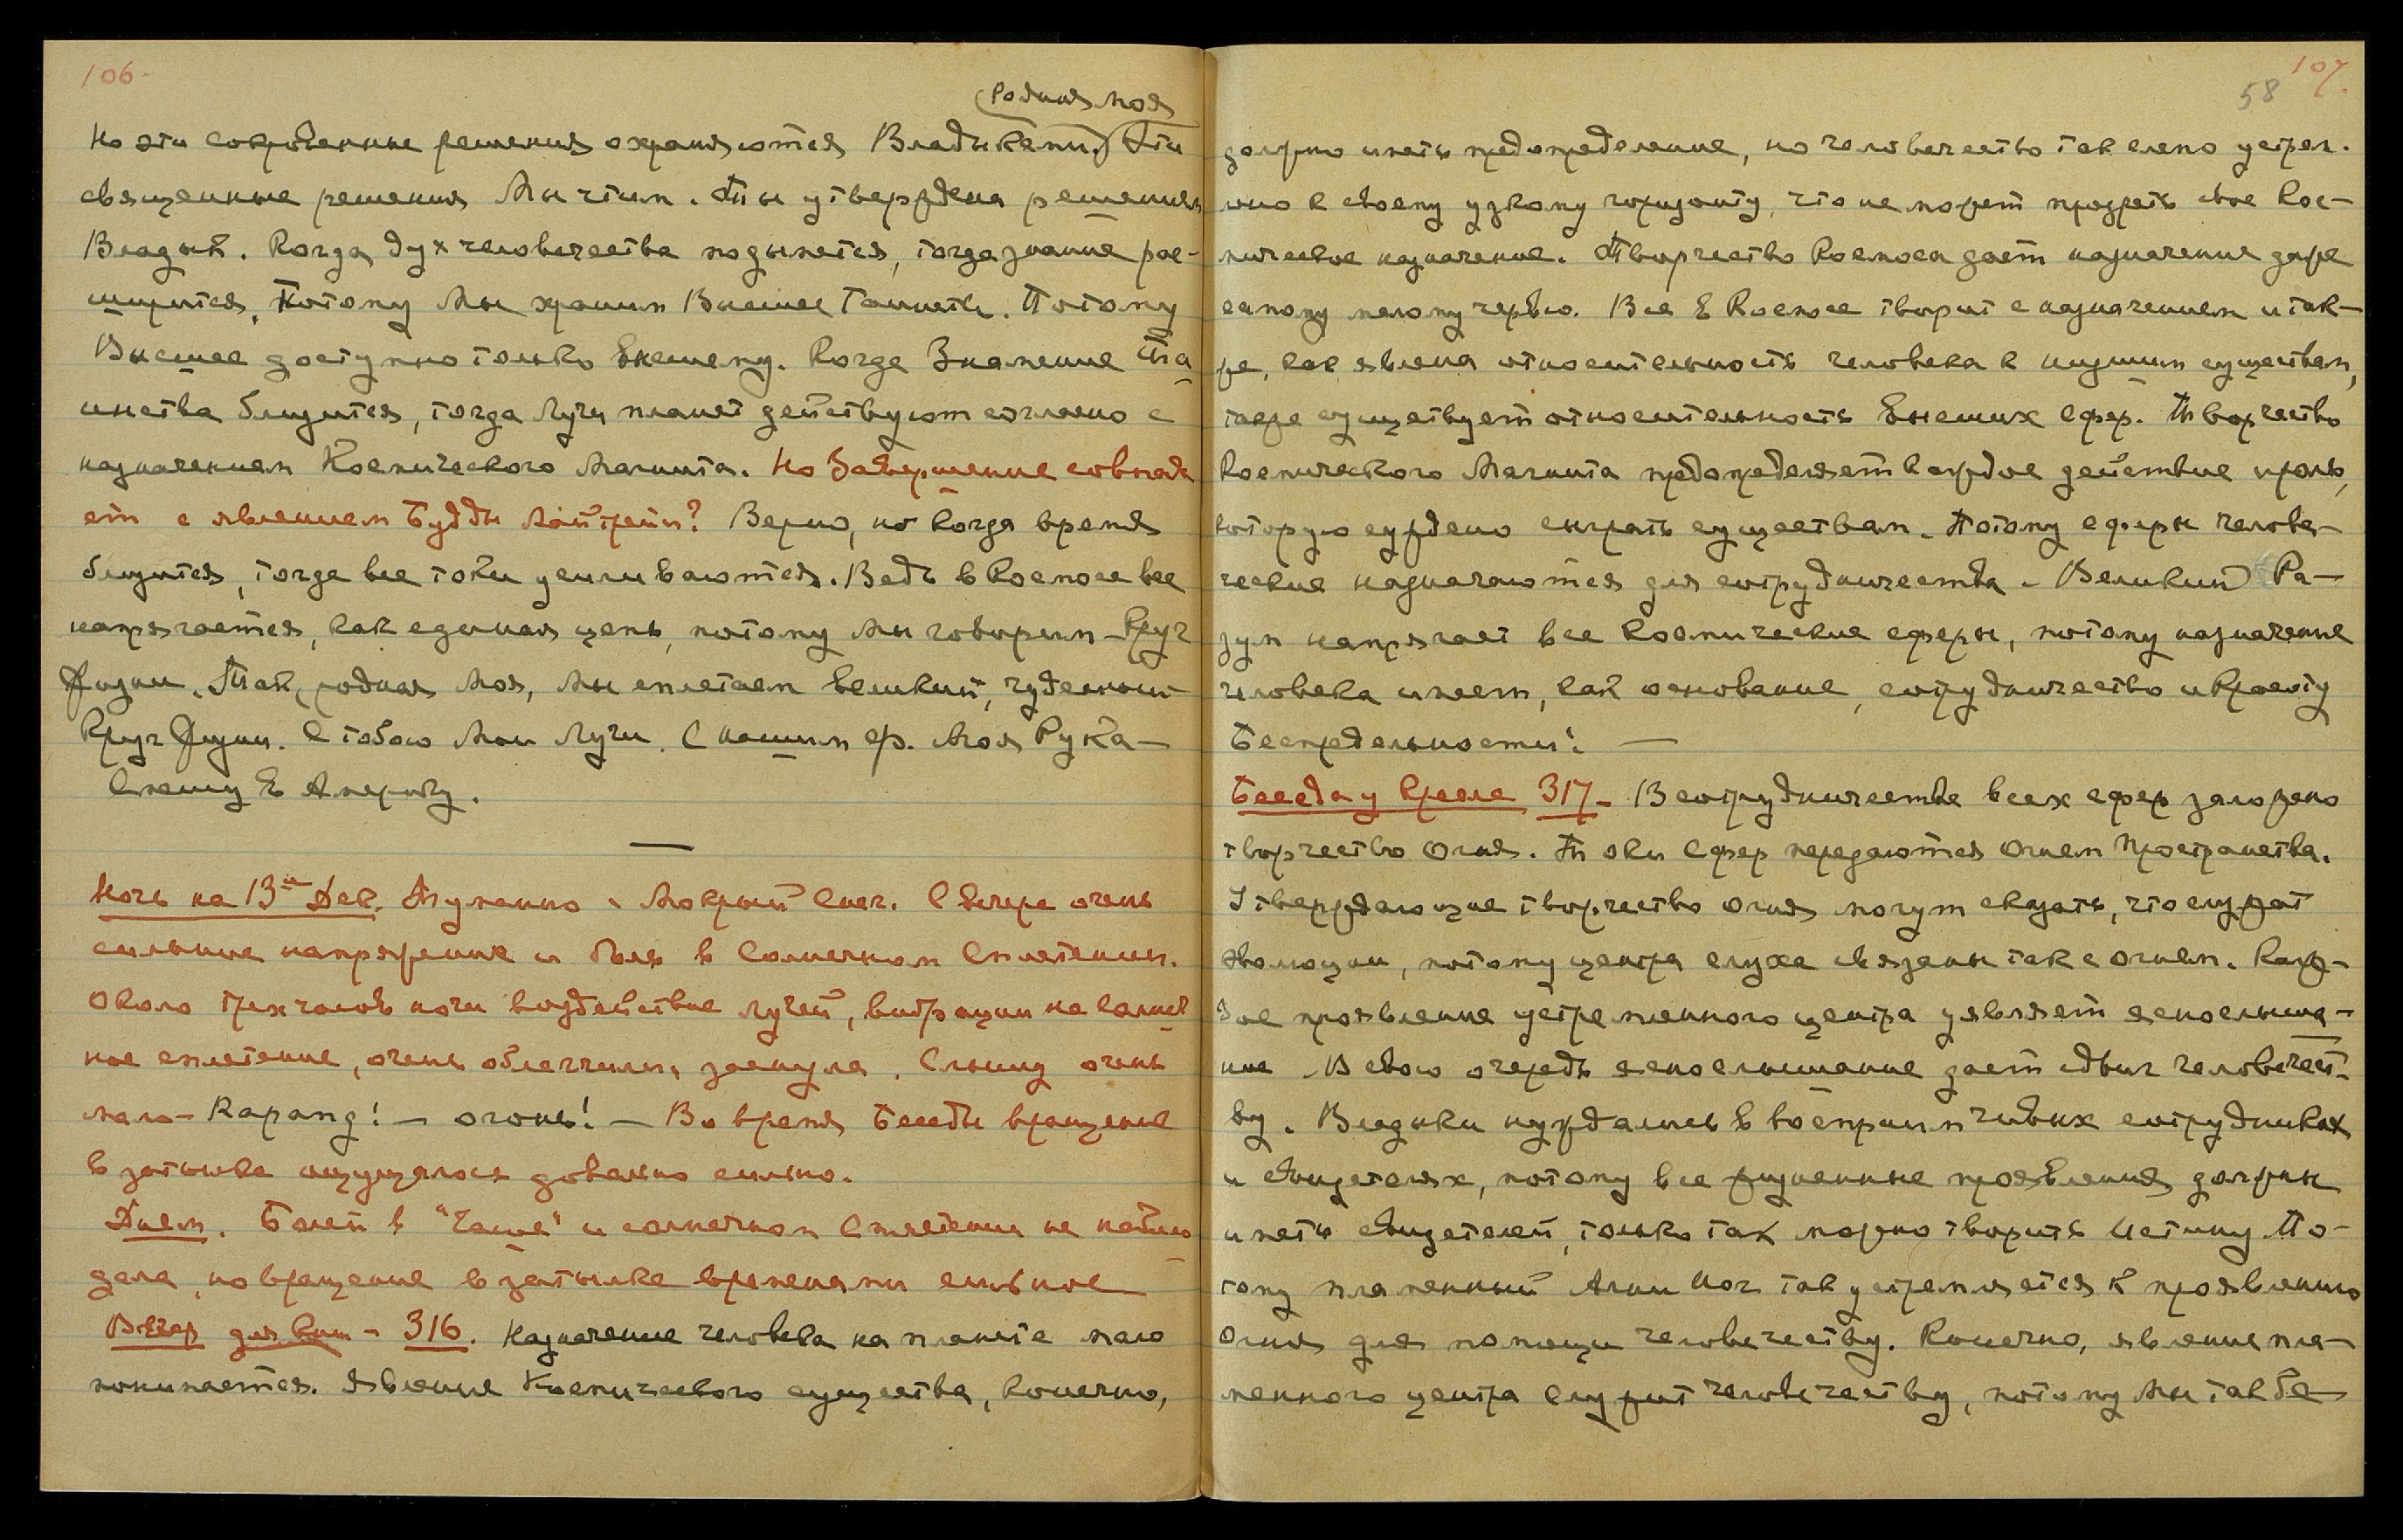 106.
Родная Моя
Но эти сокровенные решения охраняются Владыками. Эти
священные решения Мы чтим. Ты утверждена решением
Владык. Когда дух человечества подымется, тогда знание рас-
ширится. Потому Мы храним Высшее Таинств. Потому
Высшее доступно только высшему. Когда Знамение Та-
инства близится, тогда Лучи планет действуют согласно с
назначением Космического Магнита. Но Завершение совпада
ет с явлением Будды Майтрейи? Верно, но когда время
близится, тогда все токи усиливаются. Ведь в Космосе все
напрягается, как единая цепь, потому Мы говорим – Круг
Жизни. Так, родная Моя, Мы сплетаем великий, чудесный
Круг Жизни. С тобою Мои Лучи. С нашим ф. Моя Рука –
Спешу в Америку.
—
Ночь на 13ое Дек. Туманно. Мокрый снег. С вечера очень
сильное напряжение и боль в Солнечном Сплетении.
Около трех часов ночи воздействие лучей, вибрации на солнеч
ное сплетение, очень облегчили, заснула. Слышу очень
мало – Каранд! – огонь! – Во время Беседы вращение
в затылке ощущалось довольно сильно.
Днем. Болей в "Чаше" и солнечном Сплетении не наблю
дала, но вращение в затылке временами сильное
Вечер для книг – 316. Назначение человека на планете мало
понимается. Явление Космического существа, конечно,
58 107.
должно иметь предопределение, но человечество так слепо устрем-
лено к своему узкому горизонту, что не может прозреть свое Кос-
мическое назначение. Творчество Космоса дает назначение даже
самому малому червю. Все в Космосе творит с назначением и так-
же, как явлена относительность человека к низшим существам,
также существует относительность высших сфер. Творчество
Космического Магнита предопределяет каждое действие и роль,
которую суждено сыграть существам. Потому сферы челове-
ческие назначаются для сотрудничества. Великий Ра-
зум напрягает все Космические сферы, потому назначение
человека имеет, как основание, сотрудничество и красоту
Беспредельности! —
Беседа у кресла 317. В сотрудничестве всех сфер заложено
творчество Огня. Токи Сфер передаются Огнем Пространства.
Утверждающие творчество Огня могут сказать, что служат
эволюции, потому центра слуха связаны так с огнем. Каж-
дое проявление устремленного центра являет яснослыша-
ние. В свою очередь яснослышание дает сдвиг человечест-
ву. Владыки нуждались в восприимчивых сотрудниках
и свидетелях, потому все жизненные проявления должны
иметь свидетелей, только так можно творить Истину. По-
тому пламенный Агни Йог так устремляется к проявлению
Огня для помощи человечеству. Конечно, явление пла-
менного центра служит человечеству, потому Мы так бе-